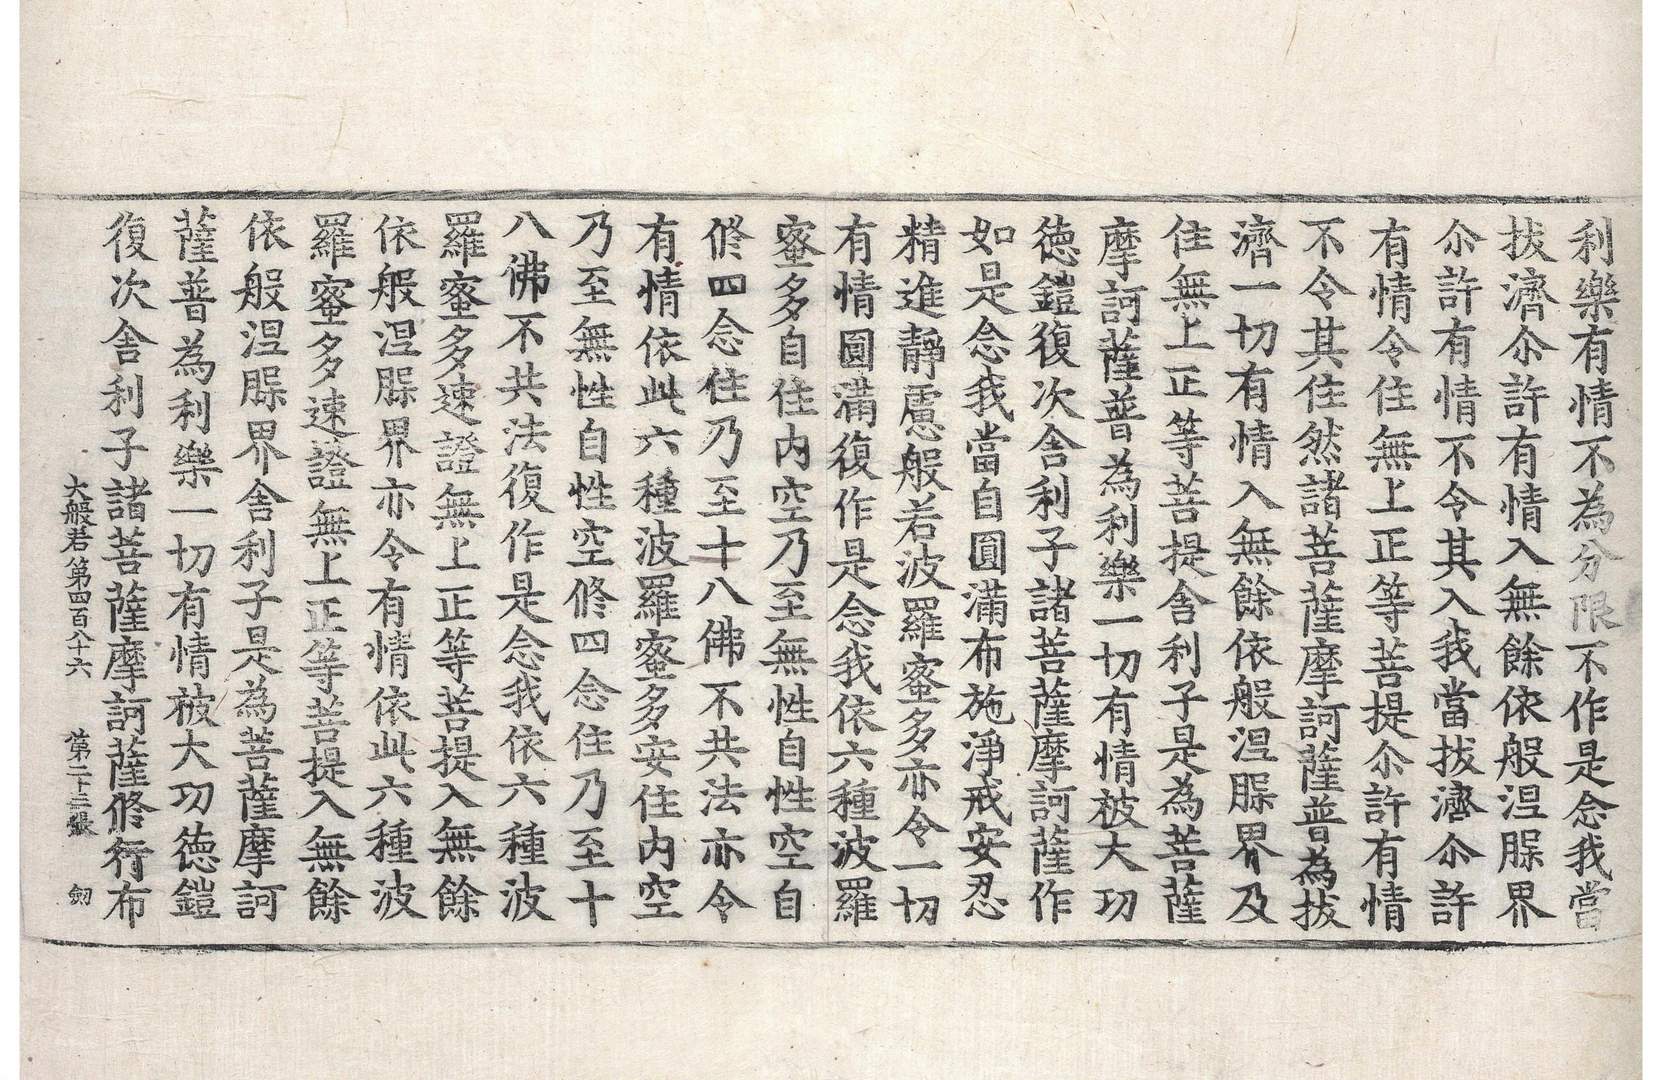 利樂有情不為分限不作是念我當
拔濟尒許有情入無餘依般涅槃界
尒許有情不令其入我當拔濟尒許
有情令住無上正等菩提尒許有情
不令其住然諸菩薩摩訶薩普為拔
濟一切有情入無餘依般涅槃界及
住無上正等菩提舍利子是為菩薩
摩訶薩普為利樂一切有情被大功
徳鎧復次舍利子諸菩薩摩訶薩作
如是念我當自圓滿布施淨戒安忍
精進靜慮般若波羅蜜多亦令一切
有情圓滿復作是念我依六種波羅
蜜多自住内空乃至無性自性空自
修四念住乃至十八佛不共法亦令
有情依此六種波羅蜜多安住内空
乃至無性自性空修四念住乃至十
八佛不共法復作是念我依六種波
羅蜜多速證無上正等菩提入無餘
依般涅槃界亦令有情依此六種波
羅蜜多速證無上正等菩提入無餘
依般涅槃界舍利子是為菩薩摩訶
薩普為利樂一切有情被大功徳鎧
復次舍利子諸菩薩摩訶薩修行布
大般若第四百八十六 第二十三張 劒